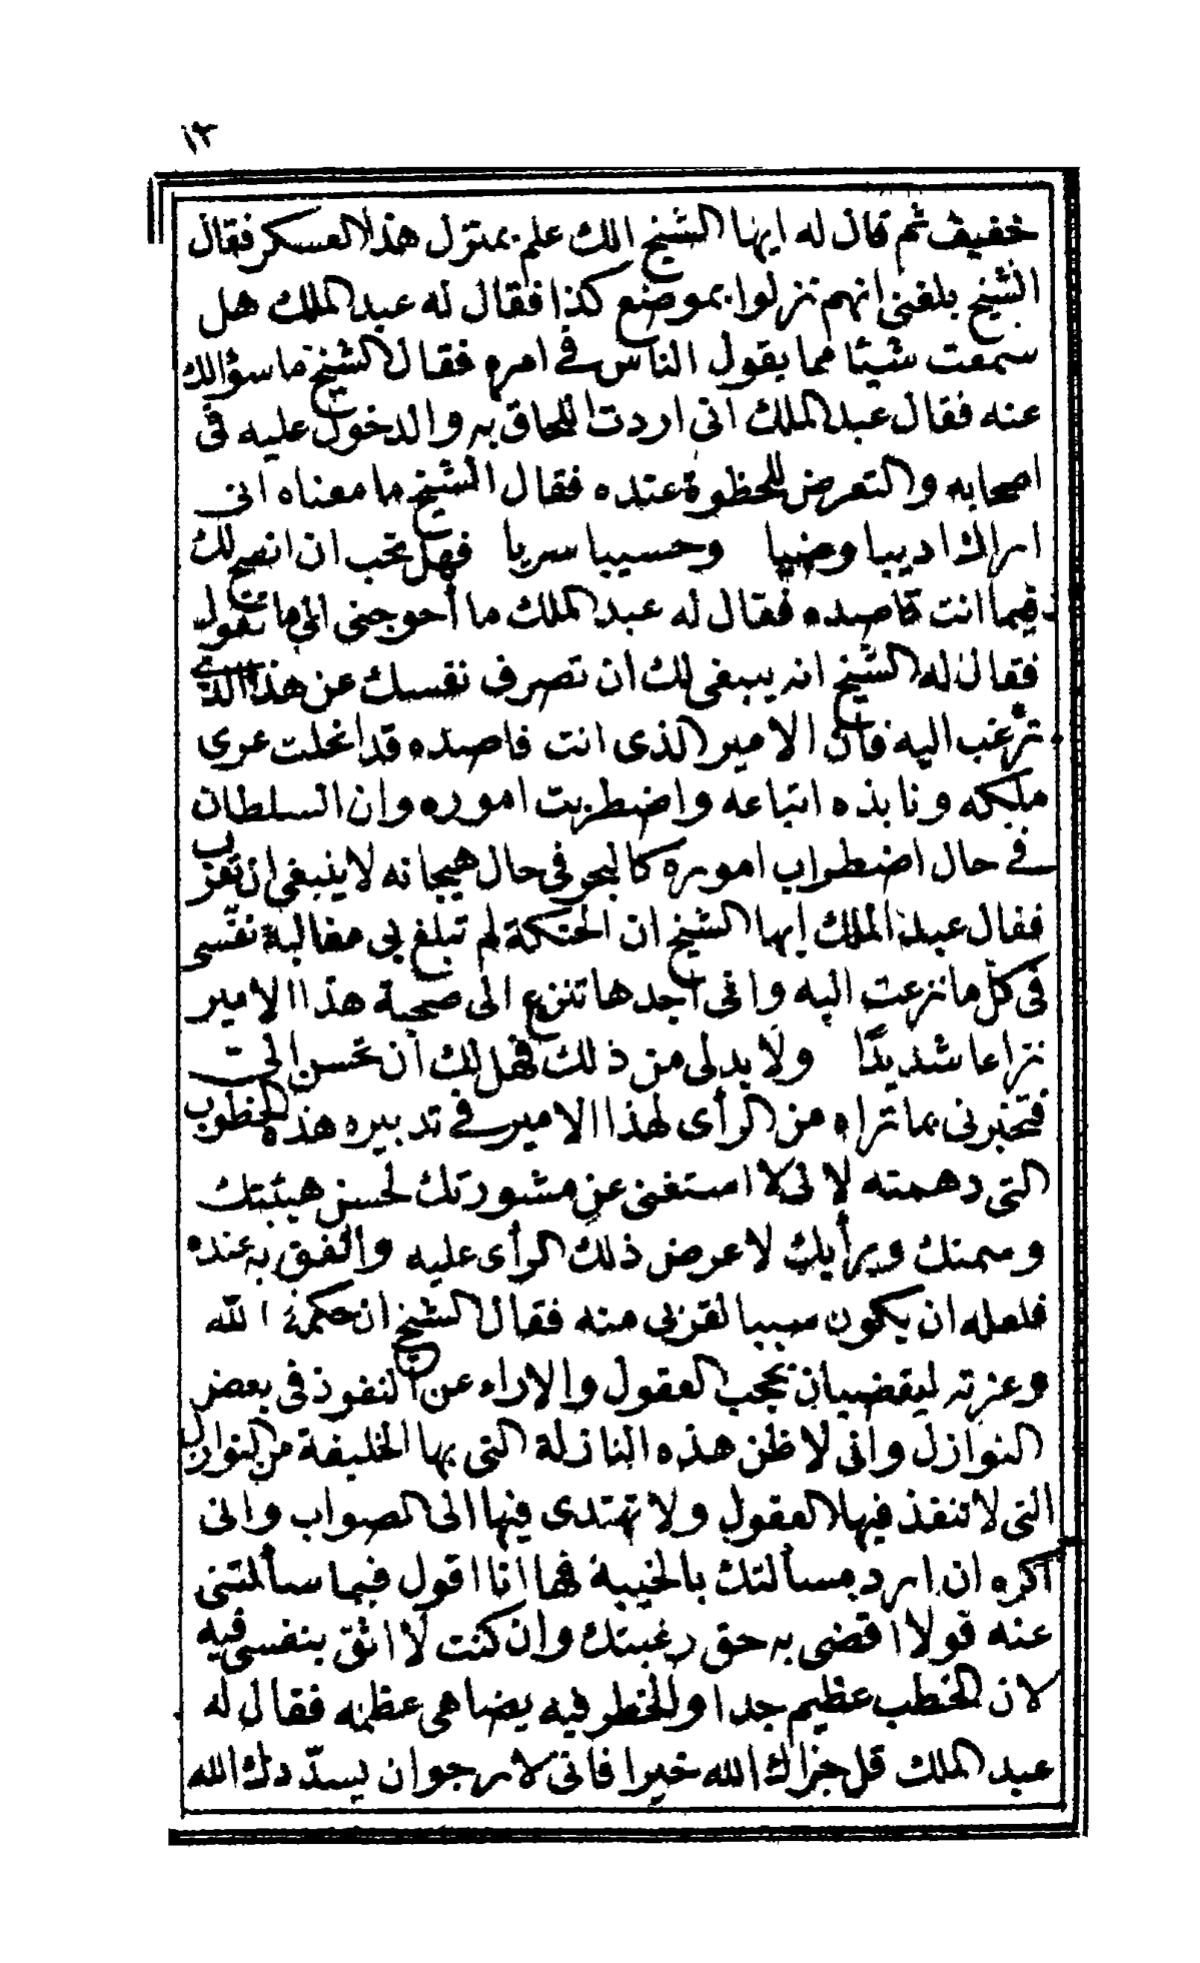 ١٣
خفيف ثم قال له ايها الشيخ الك علم بمنزل هذا العسكر فقال
الشيخ بلغنى انهم نزلوا بموضع كذا فقال له عبد الملك هل
سمعت شيئا مما يقول الناس فى امره فقال الشيخ ما سؤالك
عنه فقال عبد الملك انى اردت اللحاق به والدخول عليه فى
اصحابه والتعرض للحظوة عنده فقال الشيخ ما معناه انى
اراك اديبا وضيا وحسيبا سريا فهل تحب ان انصح لك
فيما انت قاصده فقال له عبد الملك ما أحوجنى الى ما تقول
فقال له الشيخ انه ينبغى لك أن تصرف نفسك عن هذا الذى
ترغب اليه فان الامير الذى انت قاصده قد انحلت عرى
ملكه ونابذه اتباعه واضطربت اموره وان السلطان
فى حال اضطراب اموره كالبحر فى حال هيجانه لا ينبغى ان تقرب
فقال عبد الملك إيها الشيخ ان الحنكة لم تبلغ بى مغالبة نفسى
فى كل ما نزعت اليه وانى أجدها تنزع الى صحبة هذا الامير
نزاعا شديدًا ولا بد لى من ذلك فهل لك أن تحسن الى
فتخبرنى بما تراه من الرأى لهذا الامير فى تدبيره هذه الخطوب
التى دهمته لانى لا استغنى عن مشورتك لحسن هيئتك
وسمتك وبرأيك لاعرض ذلك الرأى عليه واتفق به عنده
فلعله ان يكون سببا لقربى منه فقال الشيخ ان حكمة الله
وعزته ليقضيان بحجب العقول والاراء عن النفوذ فى بعض
النوازل وانى لاظن هذه النازلة التى بها الخليفة من النوازل
التى لا تنفذ فيها العقول ولا تهتدى فيها الى الصواب وانى
اكره ان ارد مسألتك بالخيبة فها انا اقول فيما سألتنى
عنه قولا اقضى به حق رغبتك وان كنت لا اثق بنفسى فيه
لان الخطب عظيم جدا والخطر فيه يضاهى عظمه فقال له
عبد الملك قل جزاك الله خيرا فانى لارجو ان يسدّدك الله